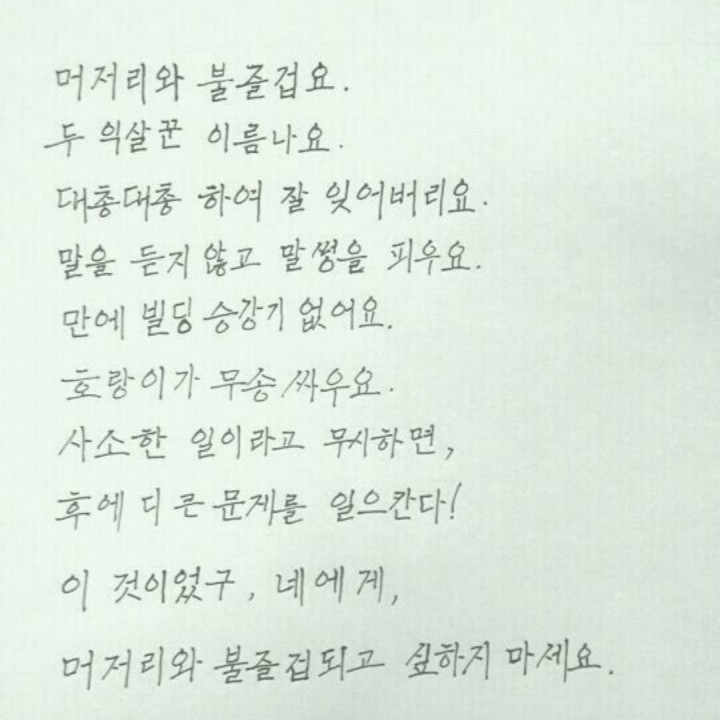 머저리와 불즐겁요.
두 익살꾼 이름나요.
대충대충 하여 잘 잊어버리요.
말을 듣지않고 말썽을 피우요.
만에 빌딩 승강기 없어요.
호랑이가 무송 싸우요.
사소한 일이라고 무시하면,
후에 더 큰 문제를 일으칸다!
이 것이었구, 네에게,
머저리와 불즐겁되고 싶하지 마세요.